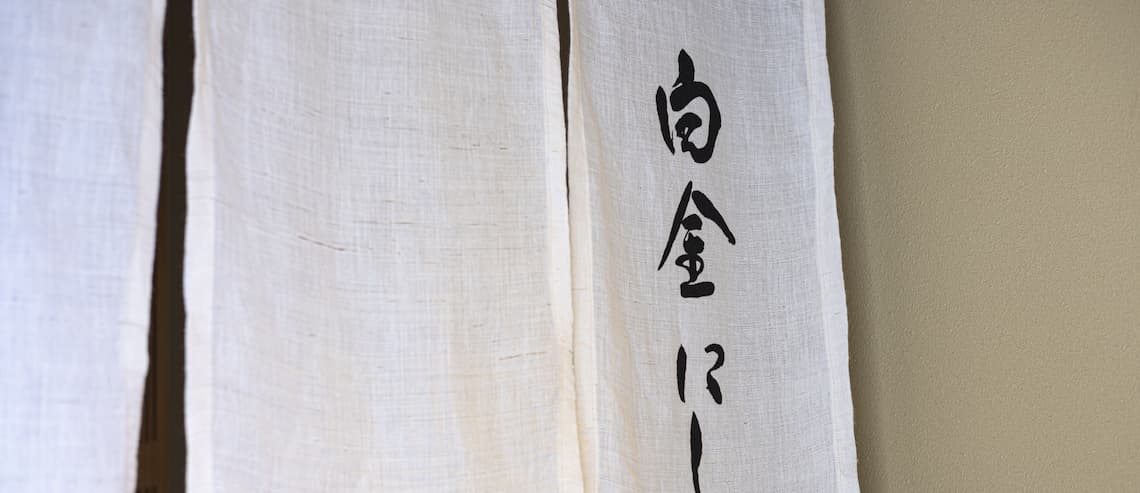 白金にし